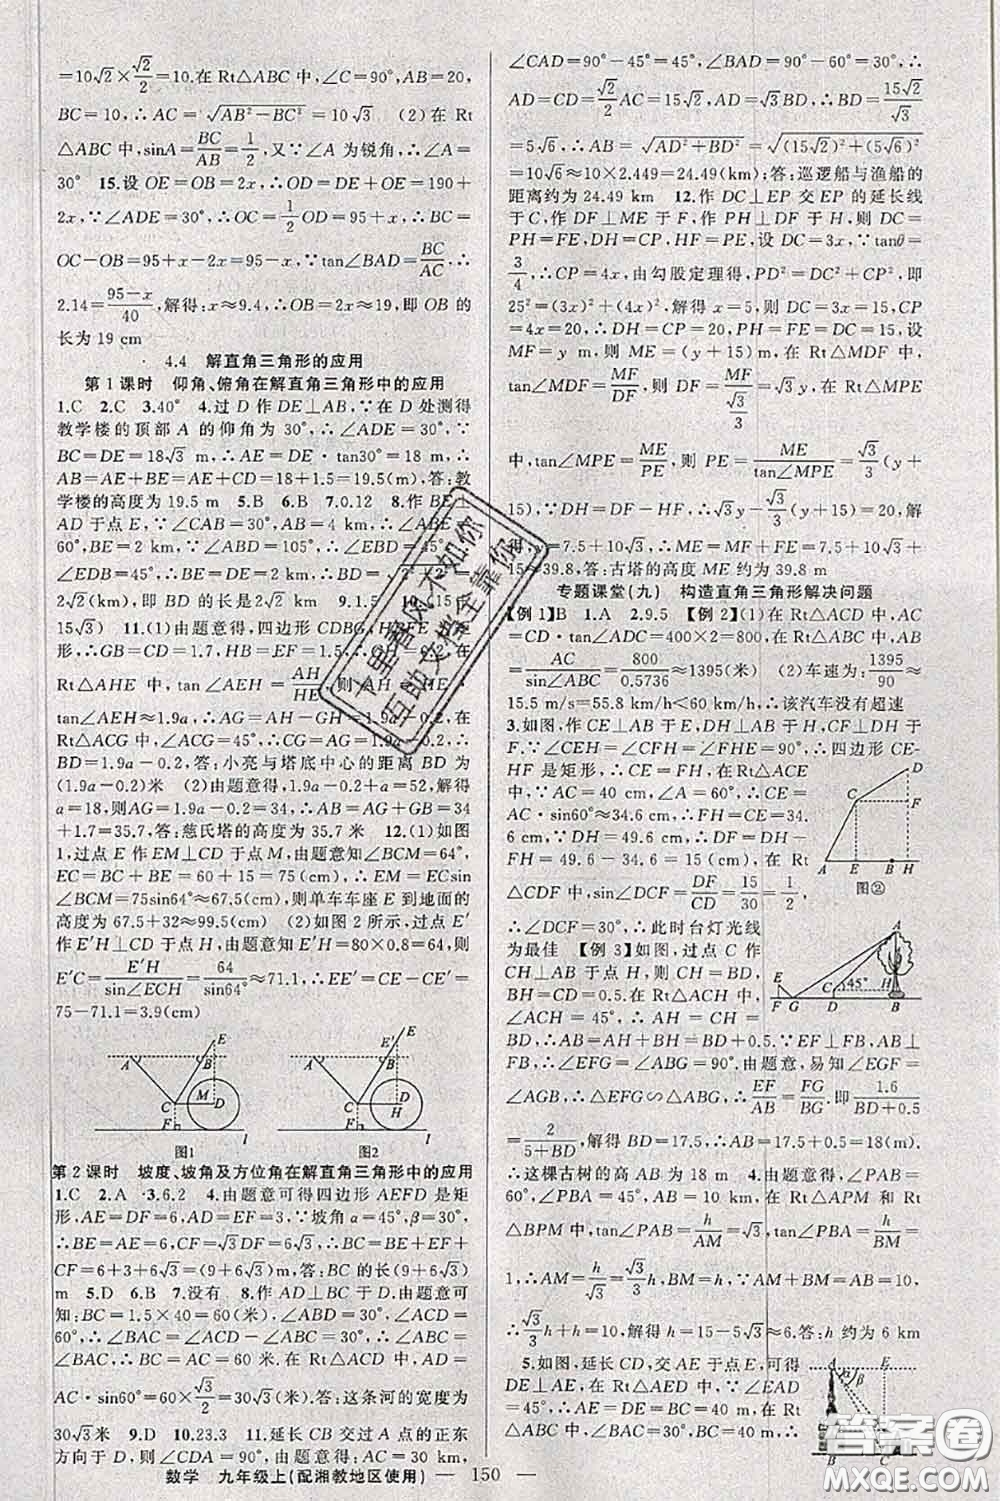 =10√2×√2/2=10.在 Rt△ABC 中,∠C=90°,AB=20,
BC=10,∴AC=√(AB²-BC²)=10√3 (2)在 Rt
△ABC 中,sinA=BC/AB=1/2,又∵∠A 为锐角,∴∠A=
30° 15.设 OE=OB=2x,∴OD=DE+OE=190+
2x,∵∠ADE=30°,∴OC=1/2OD=95+x,∴BC=
OC-OB=95+x-2x=95-x,∵tan∠BAD=BC/AC,∴
2.14=(95-x)/40,解得:x≈9.4,∴OB=2x≈19,即 OB 的
长为 19 cm
4.4 解直角三角形的应用
第1课时 仰角、俯角在解直角三角形中的应用
1.C 2.C 3.40° 4.过 D 作 DE⊥AB,∵在 D 处测得
教学楼的顶部 A 的仰角为 30°,∴∠ADE=30°,∵
BC=DE=18√3 m,∴AE=DE·tan30°=18 m,∴
AB=AE+BE=AE+CD=18+1.5=19.5(m),答:教
学楼的高度为 19.5 m 5.B 6.B 7.0.12 8.作 BE⊥
AD 于点 E,∵∠CAB=30°,AB=4 km,∴∠ABE=
60°,BE=2 km,∵∠ABD=105°,∴∠EBD=45°
km,即 BD 的长是 9.1.5
15√3) 11.(1)由题意得,四边形 CDBG、
为矩形,∴GB=CD=1.7,HB=EF=1.5,∴GH=0.2,在
Rt△AHE 中,tan∠AEH=AH/HE,则 AH=
tan∠AEH≈1.9a,∴AG=AH-GH=1.9a-0.2,在
Rt△ACG 中,∠ACG=45°,∴CG=AG=1.9a-0.2,
∴BD=1.9a-0.2,答:小亮与塔底中心的距离 BD 为
(1.9a-0.2)米 (2)由题意得,1.9a-0.2+a=52,解得
a=18,则AG=1.9a-0.2=34,∴AB=AG+GB=34
+1.7=35.7,答:慈氏塔的高度为 35.7 米 12.(1)如图
1,过点 E 作 EM⊥CD 于点 M,由题意知∠BCM=64°,
EC=BC+BE=60+15=75(cm),∴EM=
ECsin∠BCM=75sin64°≈67.5(cm),则单车车座 E 到地面的
高度为 67.5+32≈99.5(cm) (2)如图 2 所示,过点 E'
作 E'H⊥CD 于点 H,由题意知 E'H=80×0.8=64,则
E'C=E'H/sin∠ECH=64/sin64°≈71.1,∴EE'=CE-CE'=
75-71.1=3.9(cm)
A B E C M D F l
图1
A B E' C D H F l
图2
第2课时 坡度、坡角及方位角在解直角三角形中的应用
1.C 2.A 3.6.2 4.由题意可得四边形 AEFD 是矩
形,AE=DF=6,AD=EF=3,∵坡角 α=45°,β=30°,
∴BE=AE=6,CF=√3DF=6√3,∴BC=BE+EF+
CF=6+3+6√3=9+6√3(m),答:BC 的长(9+6√3)
m 5.D 6.B 7.没有 8.作 AD⊥BC 于 D.由题意可
知:BC=1.5×40=60(米),∠ABD=30°,∠ACD=
60°,∴∠BAC=∠ACD-∠ABC=30°,∴∠ABC=
∠BAC,∴BC=AC=60 米.在 Rt△ACD 中,AD=
AC·sin60°=60×√3/2=30√3(米).答:这条河的宽度为
30√3米 9.D 10.23.3 11.延长 CB 交过 A 点的正东
方向于 D,则∠CDA=90°,由题意得:AC=30 km,
∠CAD=90°-45°=45°,∠BAD=90°-60°=30°,∴
AD=CD=√2/2AC=15√2,AD=√3BD,∴BD=15√2/√3
=5√6,∴AB=√(AD²+BD²)=√((15√2)²+(5√6)²)
=10√6≈10×2.449=24.49(km);答:巡逻船与渔船的
距离约为 24.49 km 12.作 DC⊥EP 交 EP 的延长线
于 C,作 DF⊥ME 于 F,作 PH⊥DF 于 H,则 DC=
PH=FE,DH=CP,HF=PE,设 DC=3x,∵tanθ=
3/4,∴CP=4x,由勾股定理得,PD²=DC²+CP²,即
25²=(3x)²+(4x)²,解得 x=5,则 DC=3x=15,CP=
4x=20,∴DH=CP=20,FE=DC=15,设
MF=y m,则 ME=(y+15)m,在 Rt△MDF 中,
tan∠MDF=MF/DF,则 DF=MF/(√3/3)=√3y,在 Rt△MPE
中,tan∠MPE=ME/PE,则 PE=ME/tan∠MPE=√3/3(y+
15),∵DH=DF-HF,∴√3y-√3/3(y+15)=20,解
得,y=7.5+10√3,∴ME=MF+FE=7.5+10√3+
15≈39.8,答:古塔的高度 ME 约为 39.8 m
专题课堂(九) 构造直角三角形解决问题
【例1】B 1.A 2.9.5 【例2】(1)在 Rt△ACD 中,AC
=CD·tan∠ADC=400×2=800,在 Rt△ABC 中,AB
=AC/sin∠ABC=800/0.5736≈1395(米) (2)车速为:1395/90≈
15.5 m/s=55.8 km/h<60 km/h,∴该汽车没有超速
3.如图,作 CE⊥AB 于 E,DH⊥AB 于 H,CF⊥DH 于
F.∵∠CEH=∠CFH=∠FHE=90°,∴四边形 CE-
HF 是矩形,∴CE=FH,在 Rt△ACE
中,∵AC=40 cm,∠A=60°,∴CE=
AC·sin60°≈34.6 cm,∴FH=CE=34.
6 cm,∵DH=49.6 cm,∴DF=DH-
FH=49.6-34.6=15(cm),在 Rt
△CDF 中,sin∠DCF=DF/CD=15/30=1/2,
∴∠DCF=30°,∴此时台灯光线
为最佳 【例3】如图,过点 C 作
CH⊥AB 于点 H,则 CH=BD,
BH=CD=0.5,在 Rt△ACH 中,
∠ACH=45°,∴AH=CH=
BD,∴AB=AH+BH=BD+0.5,∵EF⊥FB,AB⊥
FB,∴∠EFG=∠ABG=90°,由题意,易知∠EGF=
∠AGB,∴△EFG∽△ABG,∴EF/AB=FG/BG.即1.6/(BD+0.5)
=2/(5+BD),解得 BD=17.5,∴AB=17.5+0.5=18(m),
∴这棵古树的高 AB 为 18 m 4.由题意得,∠PAB=
60°,∠PBA=45°,AB=10 km,在 Rt△APM 和 Rt△
BPM 中,tan∠PAB=h/AM=√3,tan∠PBA=h/BM=
1,∴AM=h/√3=√3/3h,BM=h,∵AM+BM=AB=10,
∴√3/3h+h=10,解得 h=15-5√3≈6.答:h 约为 6 km
5.如图,延长 CD,交 AE 于点 E,可得
DE⊥AE,在 Rt△AED 中,
∠EAD=45°
D C F A E B H
图②
A E C 45° H F G D B
A E α β
数学 九年级上(配湘教地区使用) — 150 —
十里春风不如你
互助文档全靠你
答案圈